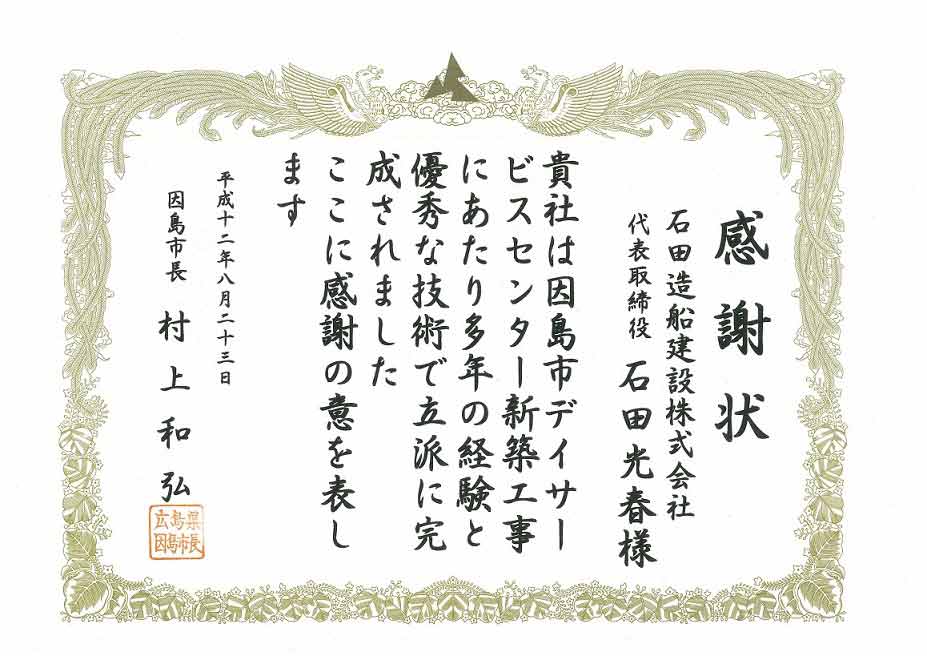 感謝状
石田造船建設株式会社
代表取締役 石田光春様
貴社は因島市デイサー
ビスセンター新築工事
にあたり多年の経験と
優秀な技術で立派に完
成されました
ここに感謝の意を表し
ます
平成十二年八月二十三日
因島市長 村上和弘
広島県
因島市長